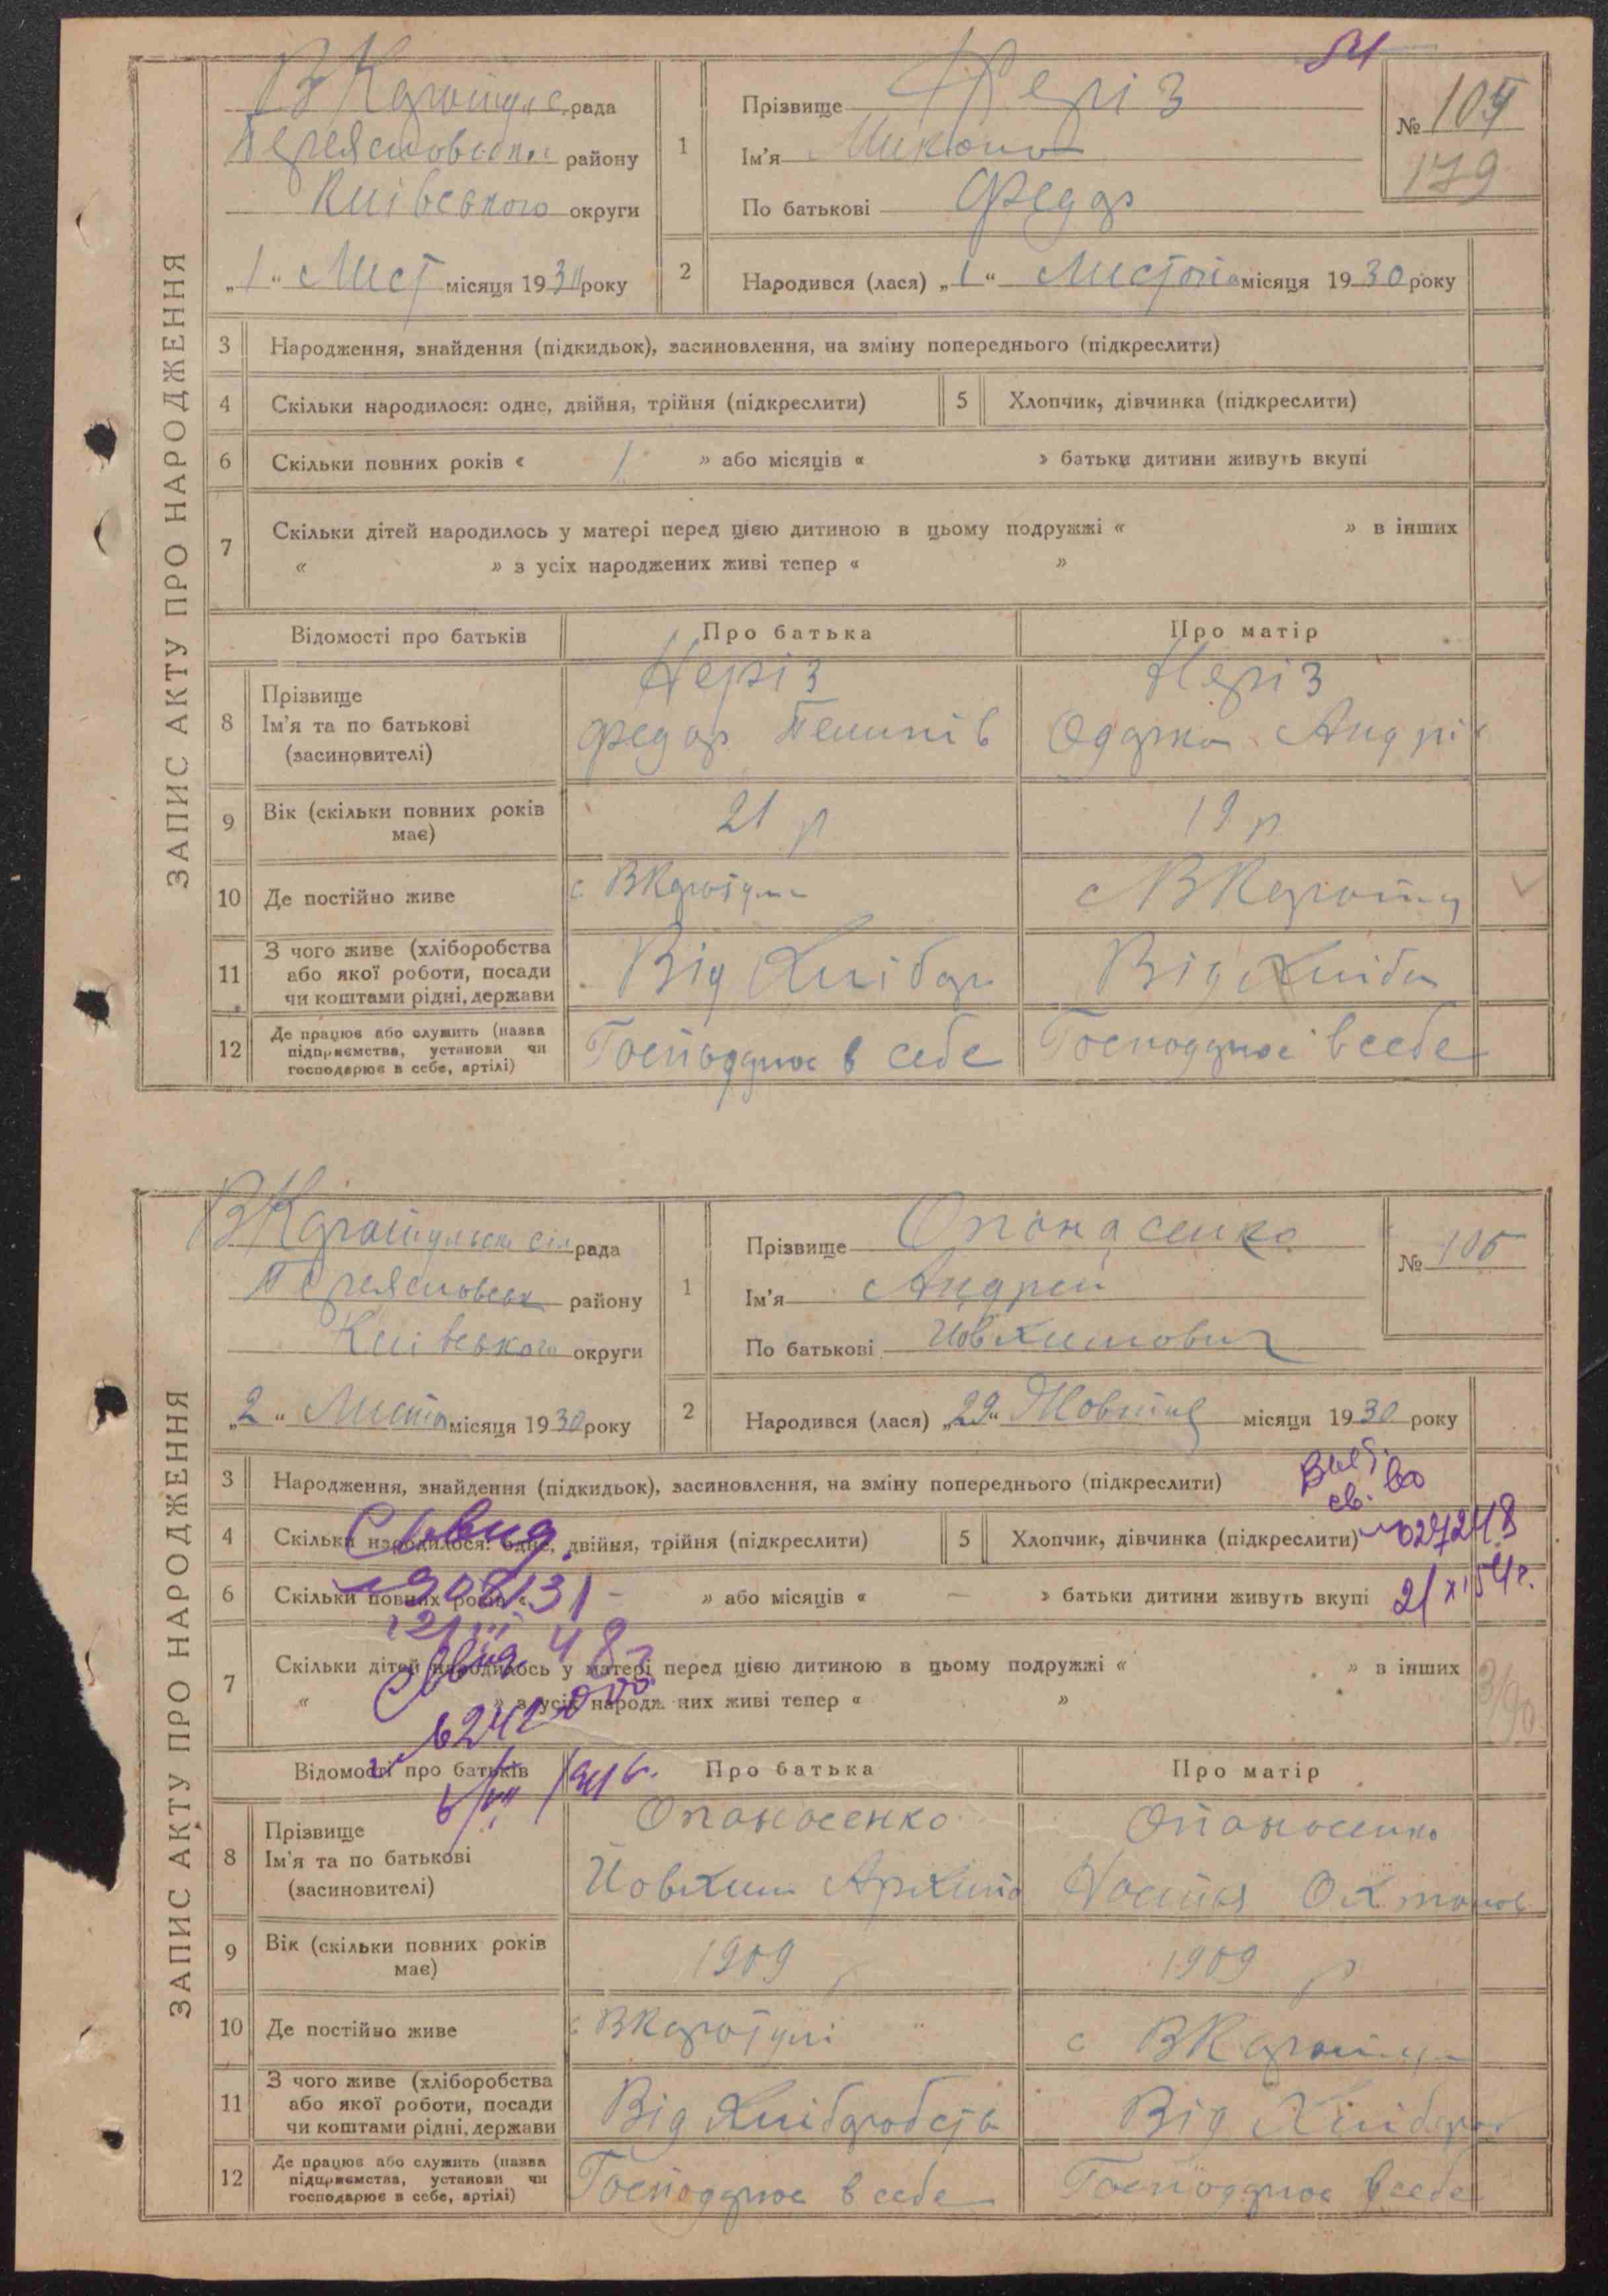 ЗАПИС АКТУ ПРО НАРОДЖЕННЯ
рада
району
Київського округи
„1“ Лист місяця 1930 року
1
Прізвище
Ім'я Микола
По батькові Федор
№ 104
179
2
Народився (лася) „1“ Листопа місяця 1930 року
3 Народження, знайдення (підкидьок), засиновлення, на зміну попереднього (підкреслити)
4 Скільки народилося: одне, двійня, трійня (підкреслити)
5 Хлопчик, дівчинка (підкреслити)
6 Скільки повних років « 1 » або місяців « » батьки дитини живуть вкупі
7 Скільки дітей народилось у матері перед цією дитиною в цьому подружжі « » в інших
« » з усіх народжених живі тепер « »
Відомості про батьків Про батька Про матір
8 Прізвище
Ім'я та по батькові
(засиновителі)
Федор
Одарка Андрі
9 Вік (скільки повних років має)
21 р
19 р
10 Де постійно живе
с ВКаратул
с ВКарат
11 З чого живе (хліборобства
або якої роботи, посади
чи коштами рідні, держави
Від Хлібор
Від Хліба
12 Де працює або служить (назва
підприємства, установи чи
господарює в себе, артілі)
Господарює в себе
Господарює в себе
ЗАПИС АКТУ ПРО НАРОДЖЕННЯ
рада
району
Київського округи
„2“ Листопа місяця 1930 року
1
Прізвище Опанасенко
Ім'я Андрей
По батькові Йовхимович
№ 105
2
Народився (лася) „29“ Жовтня місяця 1930 року
3 Народження, знайдення (підкидьок), засиновлення, на зміну попереднього (підкреслити)
4 Скільки народилося: одне, двійня, трійня (підкреслити)
5 Хлопчик, дівчинка (підкреслити)
св. во
027248
21 XI 54 г.
6 Скільки повних років « » або місяців « — » батьки дитини живуть вкупі
7 Скільки дітей народилось у матері перед цією дитиною в цьому подружжі « » в інших
« » з усіх народжених живі тепер « »
Відомості про батьків Про батька Про матір
8 Прізвище
Ім'я та по батькові
(засиновителі)
Опанасенко
Йовхим Архипо
Опанасенко
Настья
9 Вік (скільки повних років має)
1909
1909 р
10 Де постійно живе
с ВКаратулі
с ВКарат
11 З чого живе (хліборобства
або якої роботи, посади
чи коштами рідні, держави
Від Хліборобств
Від Хлібороб
12 Де працює або служить (назва
підприємства, установи чи
господарює в себе, артілі)
Господарює в себе
Господарює в себе